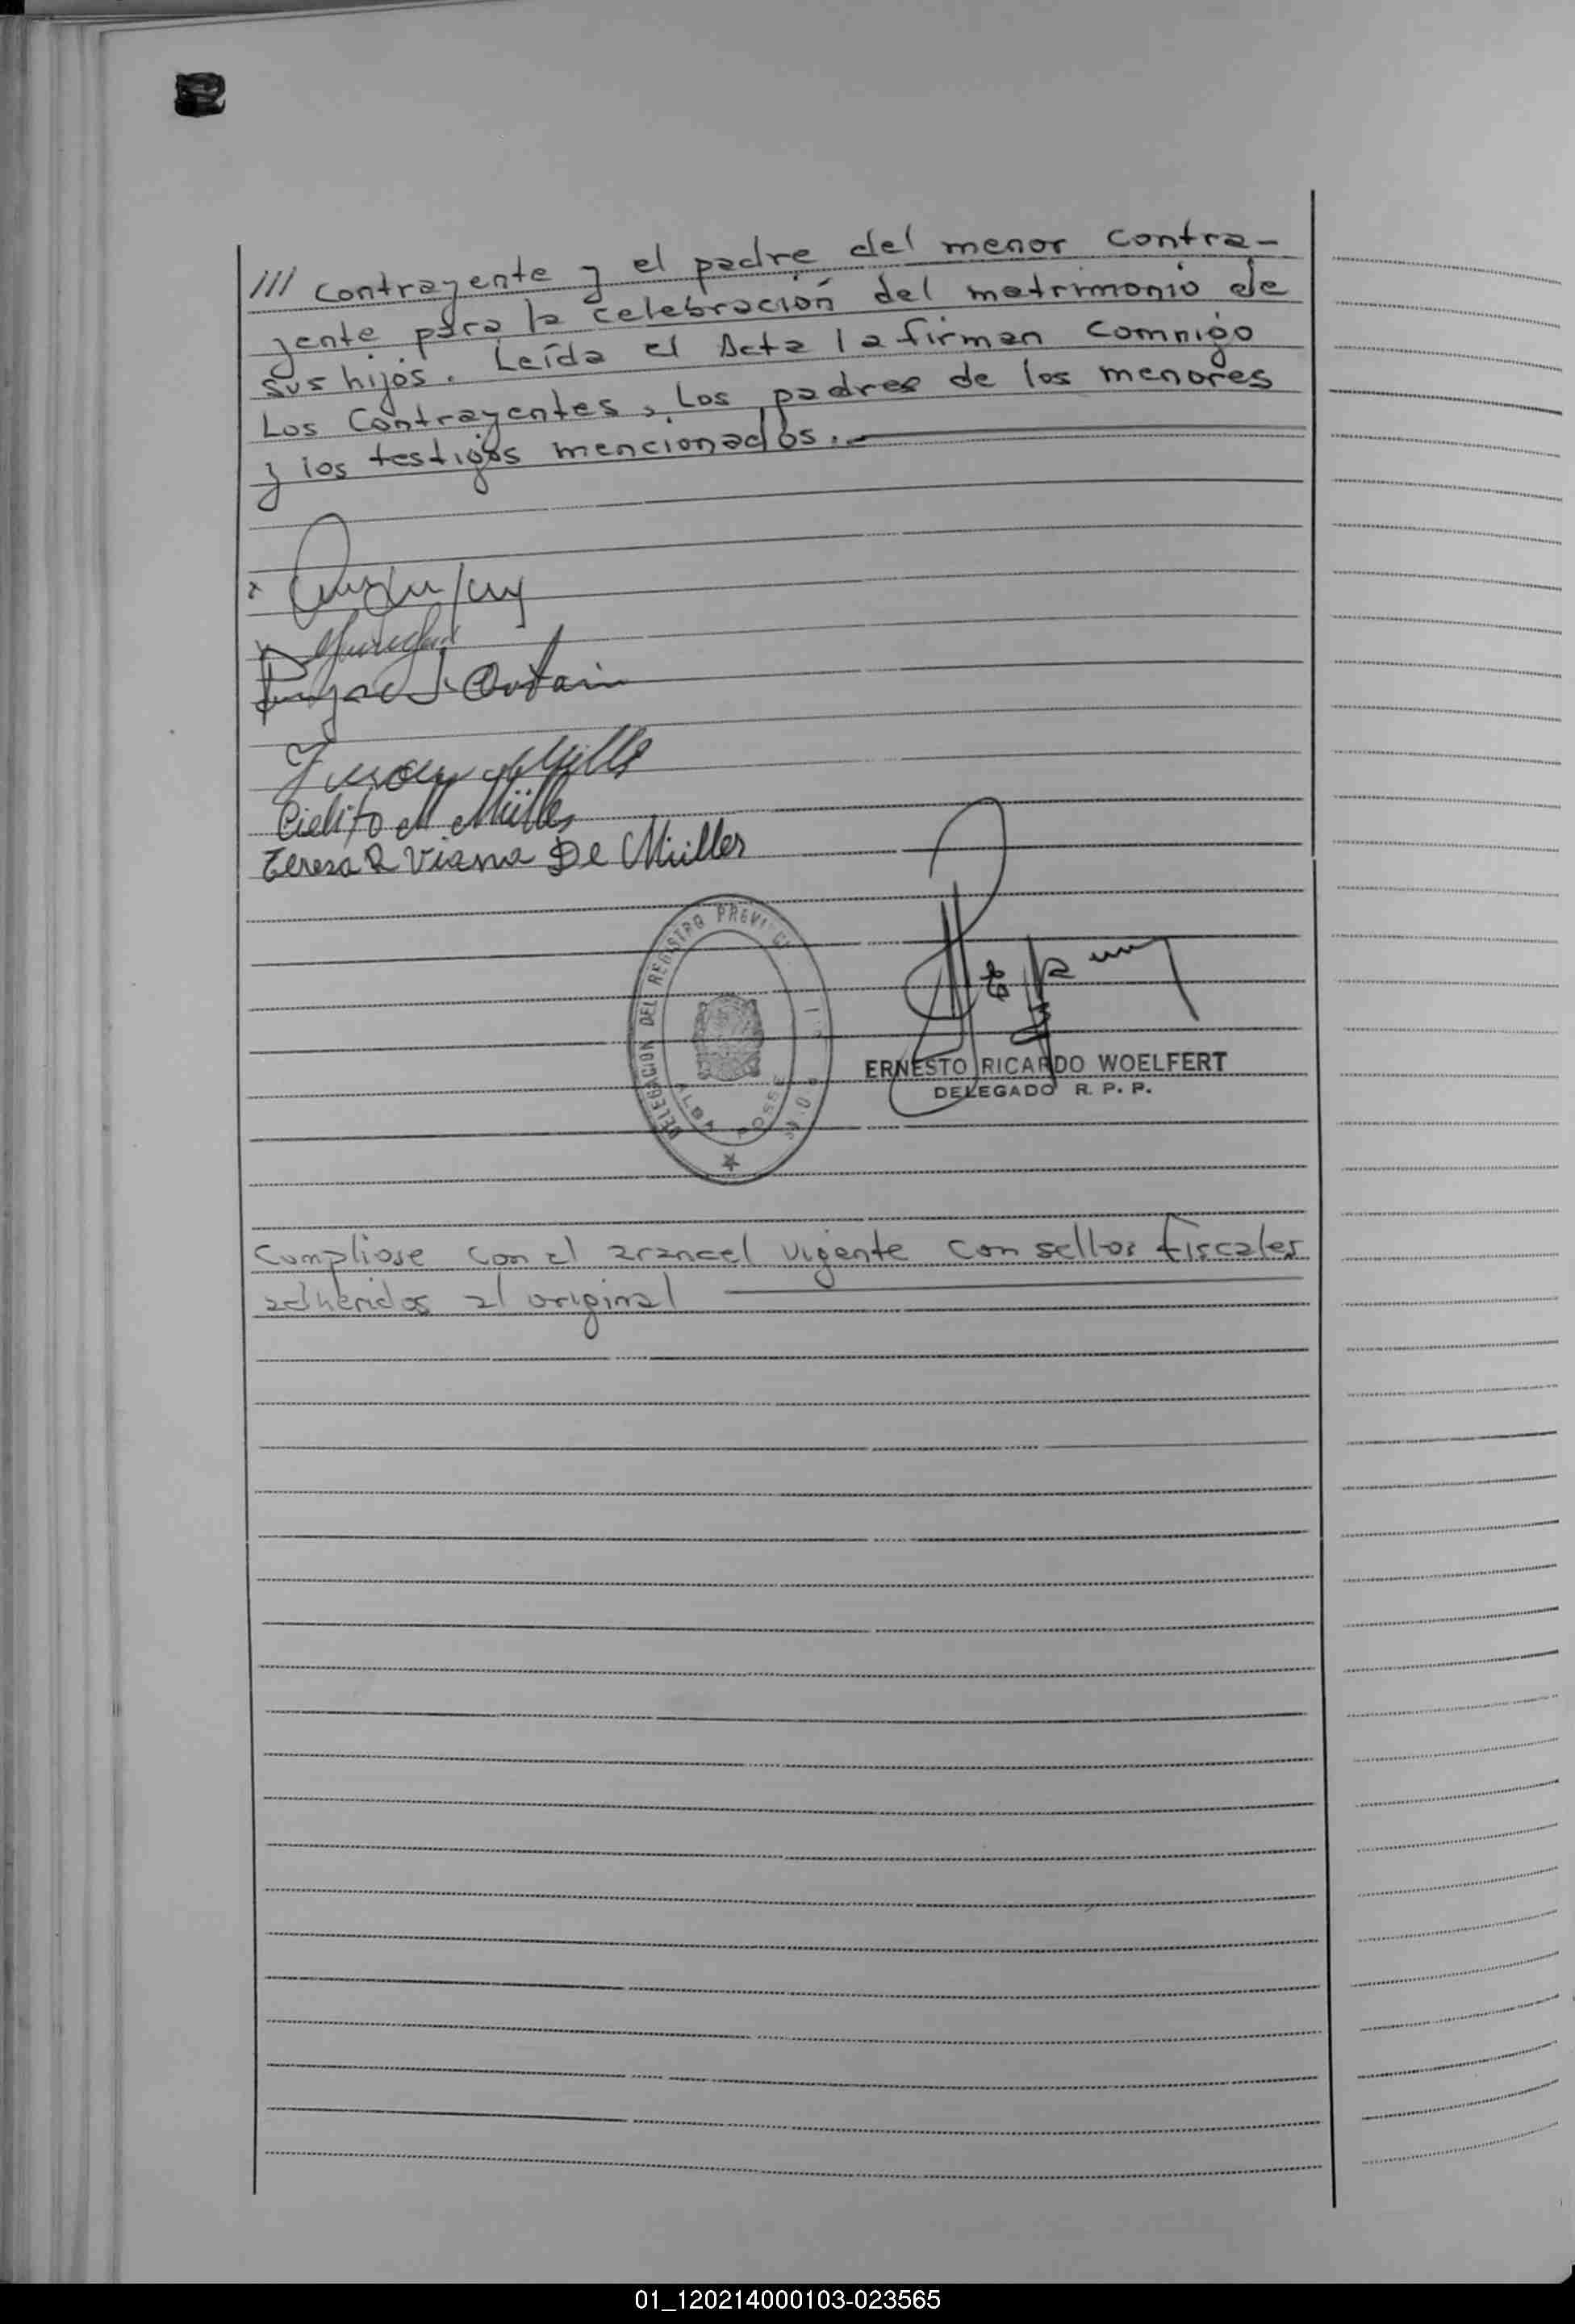 /// contrayente y el padre del menor contra-
yente para la celebración del matrimonio de
sus hijos. Leída el Acta la firman comnigo
Los Contrayentes, Los padres de los menores
y los testigos mencionados.-
x
Cielito M Müller
Teresa R Viana De Müller
DELEGACION DEL REGISTRO
ALBA POSSE
ERNESTO RICARDO WOELFERT
DELEGADO R. P. P.
Cumpliose con el arancel vigente con sellos fiscales
adheridos al original
01_120214000103-023565